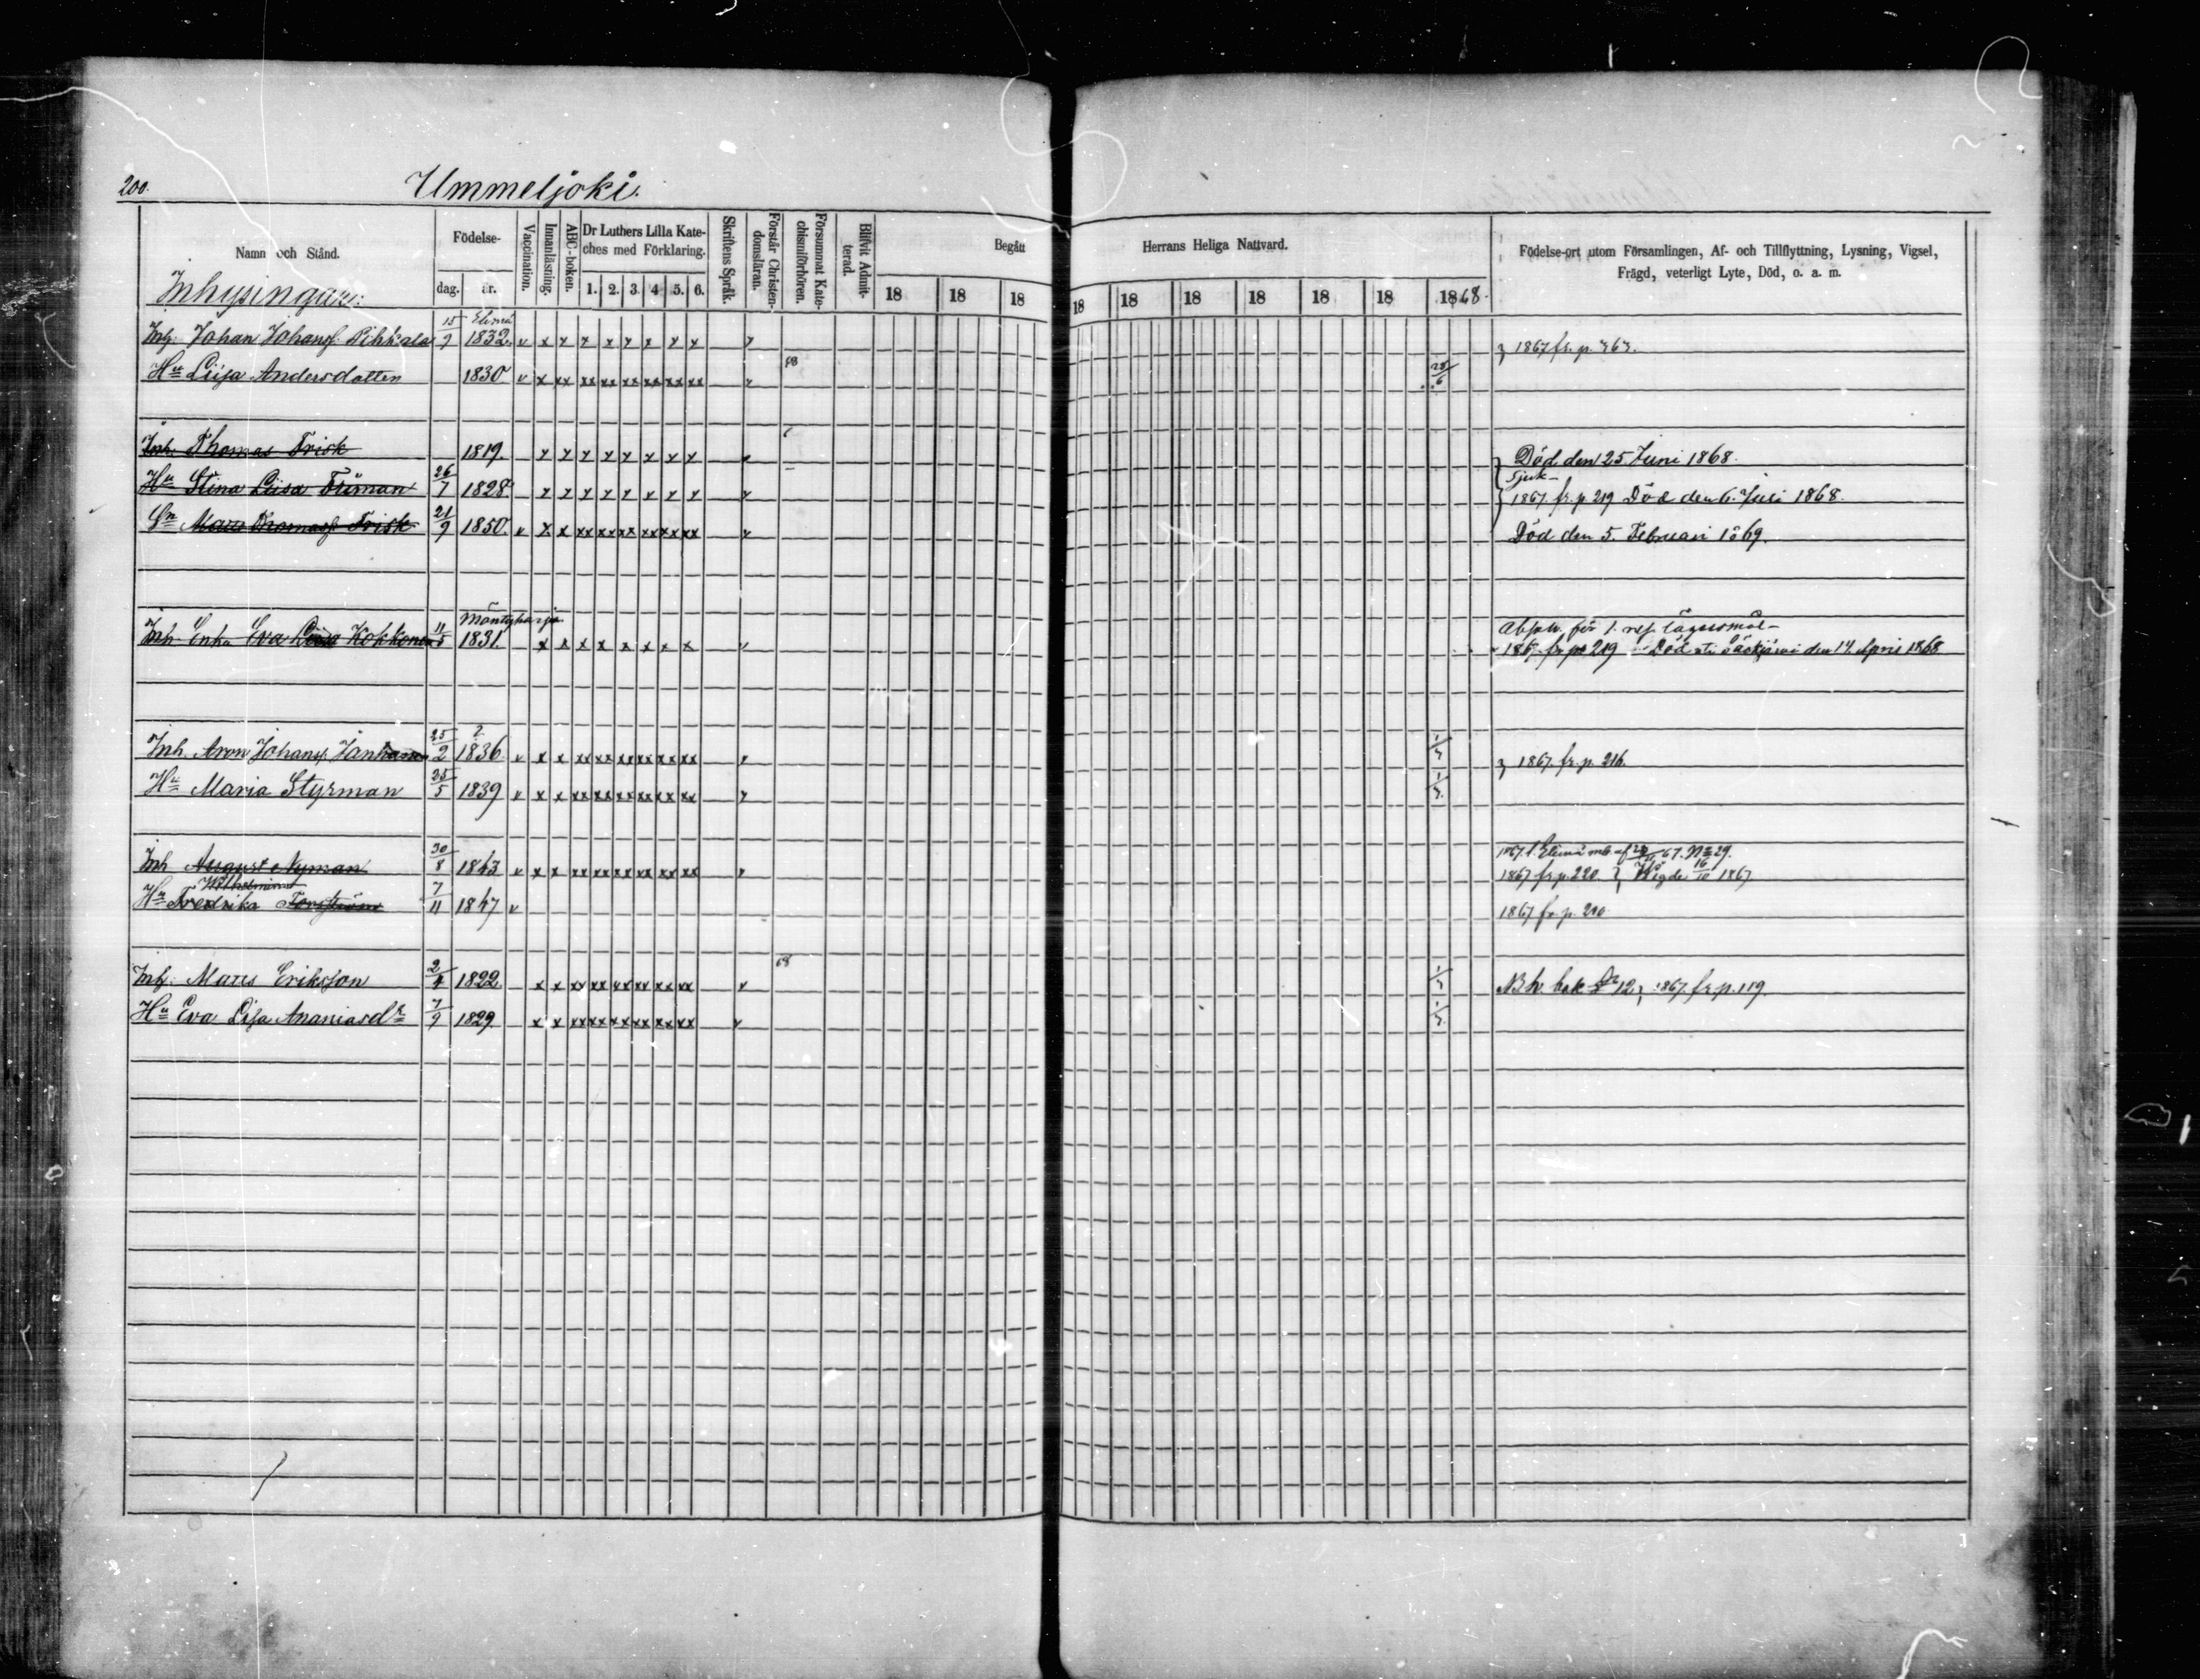 200.
Ummeljoki.
Namn och Stånd.
Inhysingar:
Födelse-
dag. år.
Vaccination.
Innanläsning.
ABC-boken.
Dr Luthers Lilla Kate-
ches med Förklaring.
1. 2. 3. 4 5. 6.
Skriftens Språk.
Förstår Christen-
domsläran.
Försummat Kate-
chismiförhören.
Blifvit Admit-
terad.
Begått Herrans Heliga Nattvard.
18 18 18 18 18 18 18 18 18 1868.
Födelse-ort utom Församlingen, Af- och Tillflyttning, Lysning, Vigsel,
Frägd, veterligt Lyte, Död, o. a. m.
Elimä
Inh. Johan Johansf. Pihkala 15/9 1832. v x x x x x x x x
1867 fr. p.
Hu Liisa Andersdotter 1830 v x xx xx xx xx xx xx xx 68 28/6
Inh. Thomas Frisk 1819. x x x x x x x x Död den 25. Juni 1868.
Sjuk
Hu Stina Liisa 26/7 1828 x x x x x x x x 1867. fr. p. 219 Död den 6. Juli 1868.
Sn Mats Thomasf. Frisk 21/9 1850. v x x xx xx xx xx xx xx Död den 5. Februari 1869.
Mäntyharju
Inh. Enka Eva Liisa Kokkonen 11/5 1831. x x x x x x x x
1867 fr. p. 219 Död den 14. April 1868.
Inh. Aron Johansf. 25/2 1836 v x x xx xx xx xx xx xx 1867. fr. p. 216.
Hu Maria Styrman 25/5 1839 v x x xx xx xx xx xx xx
Inh August Nyman 30/8 1843 v x x xx xx xx xx xx xx
67. No 29.
1867 fr. p. 220. } Vigde 16/10 1867
Wilhelmina
Hu Fredrika 7/11 1847 v 1867 fr. p. 210
Inh. Mats Eriksson 2/4 1822. x x xx xx xx xx xx xx 68 12; 1867. fr. p. 119.
Hu Eva Lisa Ananiasdr 7/9 1829. x x xx xx xx xx xx xx